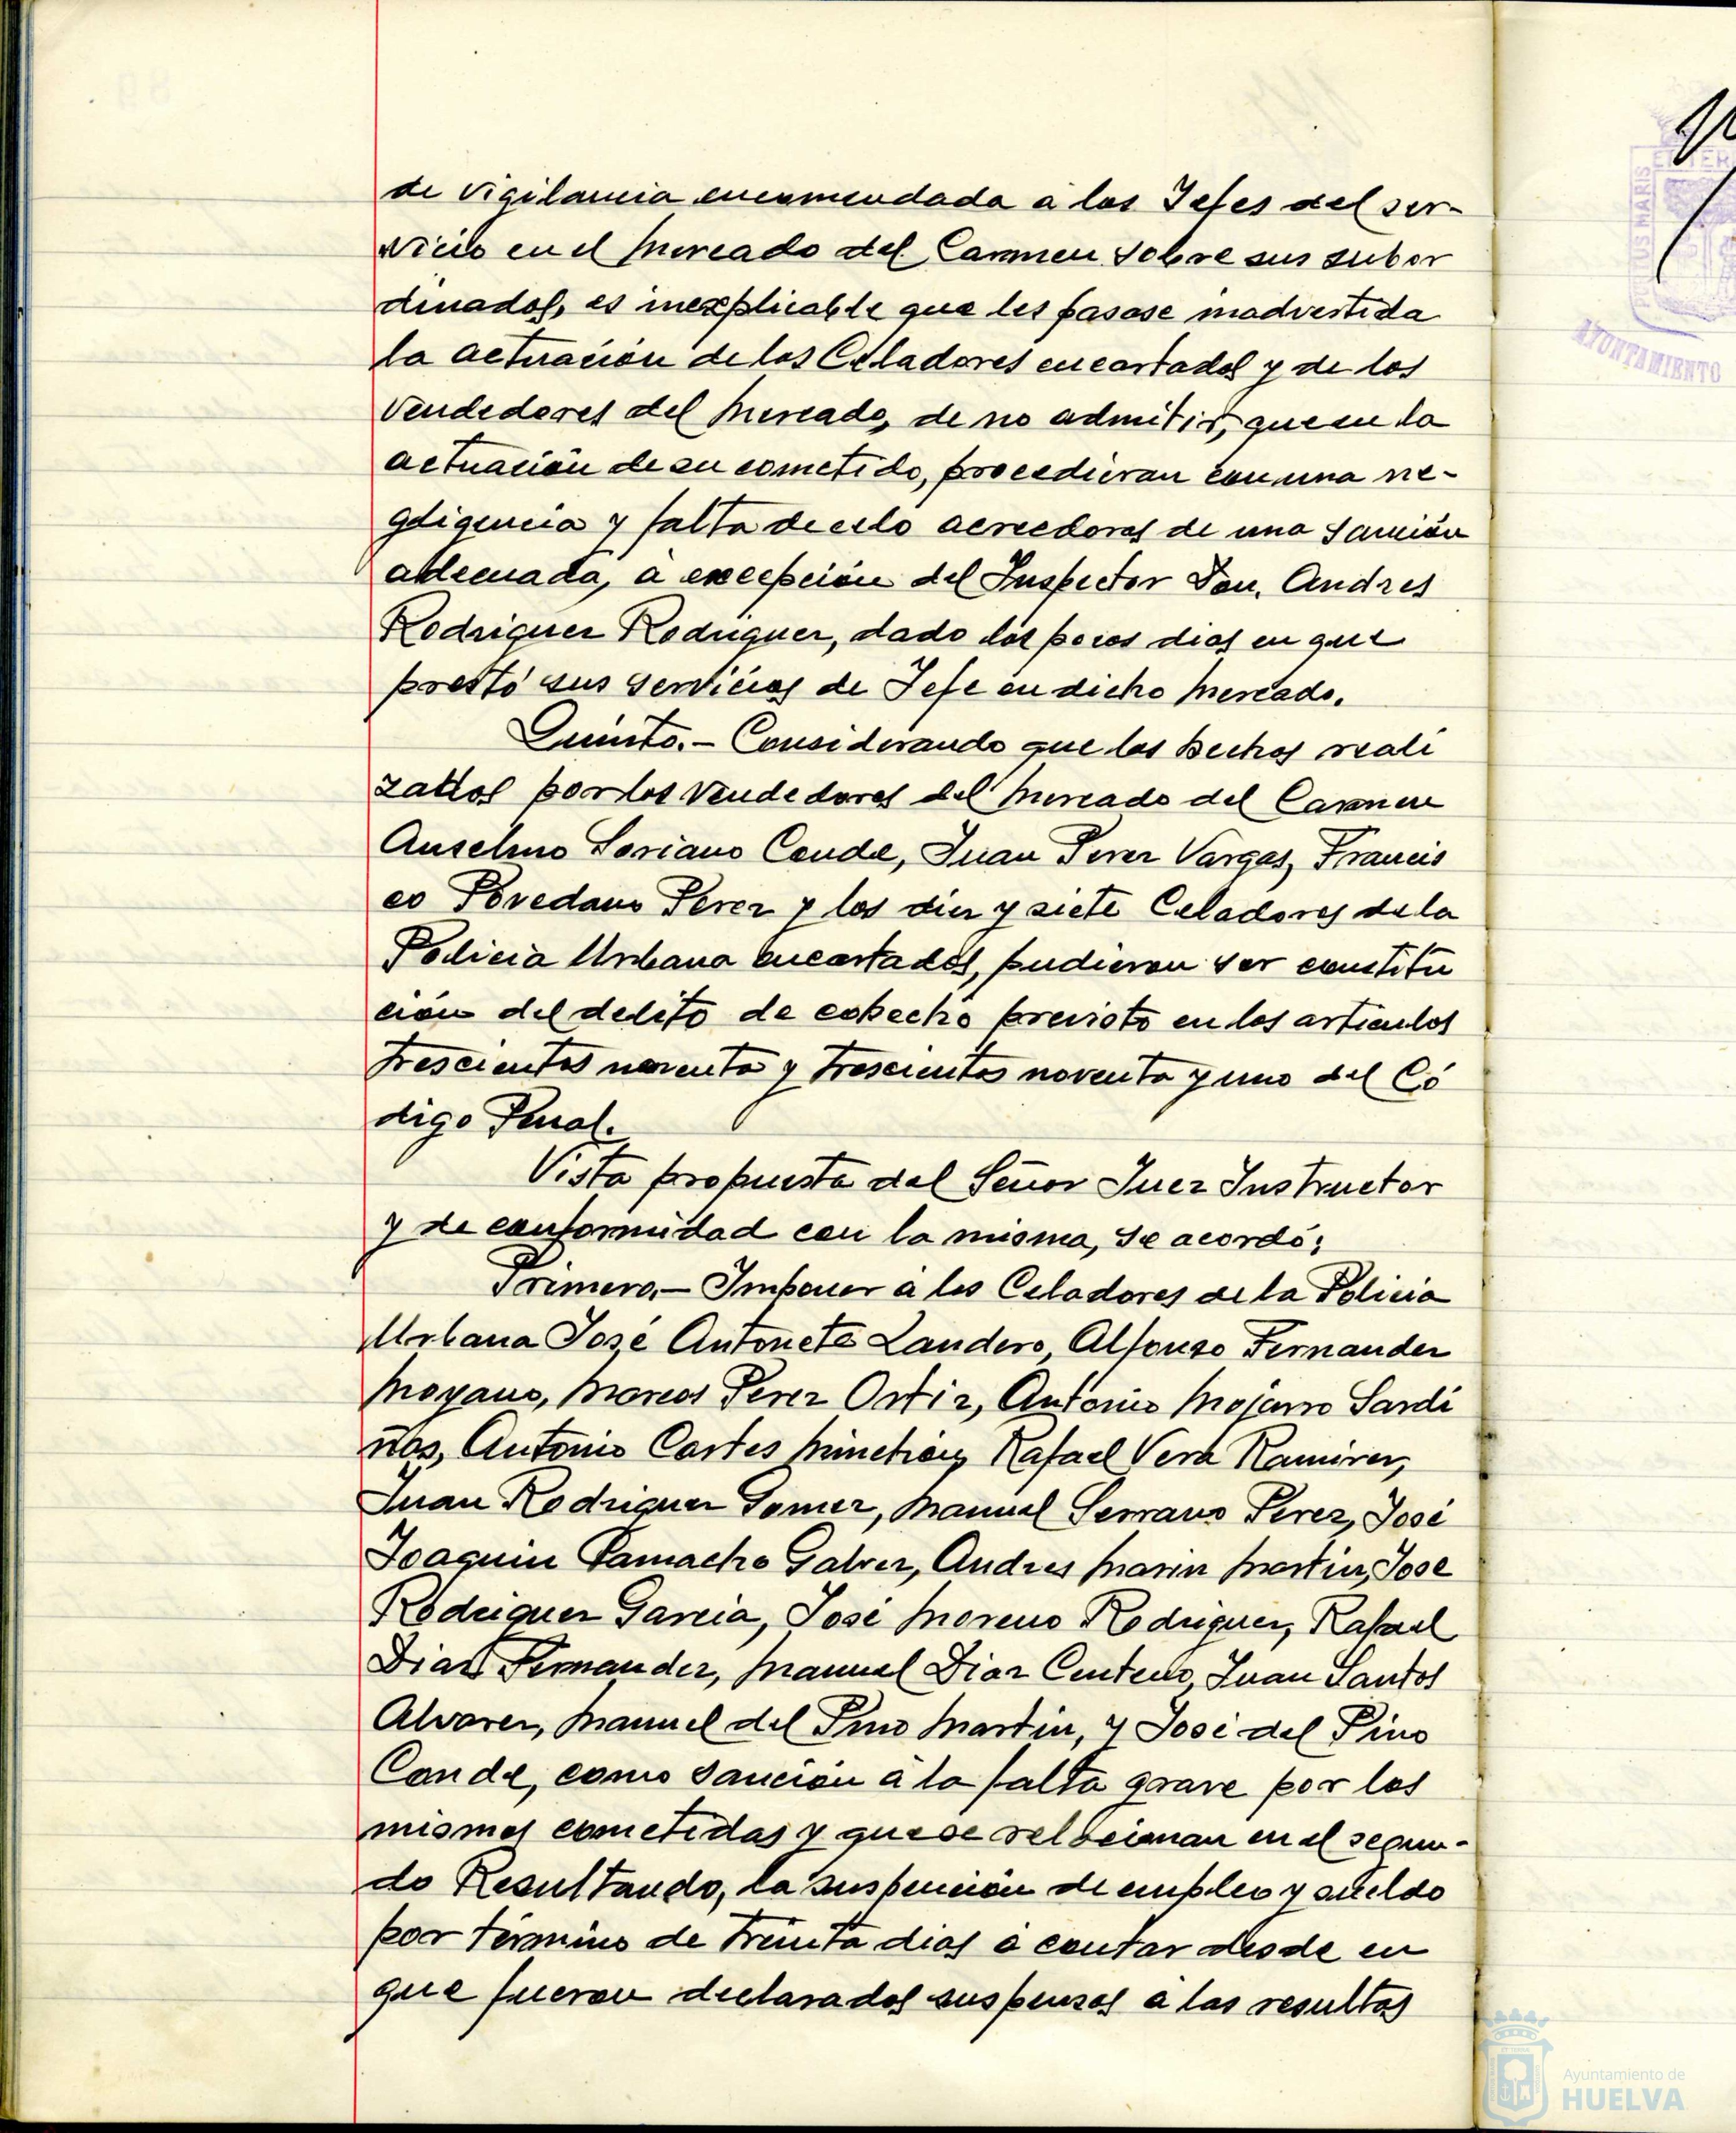 de vigilancia encomendada a los Jefes del ser-
vicio en el Mercado del Carmen sobre sus subor
dinados, es inexplicable que les pasase inadvertida
la actuación de los Celadores encartados y de los
Vendedores del Mercado, de no admitir, que en la
actuación de su cometido, procedieran con una ne-
gligencia y falta de celo acreedoras de una Sanción
adecuada, a excepción del Inspector Don. Andres
Rodriguez Rodriguez, dado los pocos dias en que
prestó sus servicios de Jefe en dicho Mercado.
Quinto.- Considerando que los hechos reali
zados por los Vendedores del Mercado del Carmen
Anselmo Soriano Conde, Juan Perez Vargas, Francis
co Povedano Perez y los diez y siete Celadores de la
Policia Urbana encartados, pudieran ser constitu
ción del delito de cohecho previsto en los articulos
trescientos noventa y trescientos noventa y uno del Có
digo Penal.
Vista propuesta del Señor Juez Instructor
y de conformidad con la misma, se acordó;
Primero.- Imponer a los Celadores de la Policia
Urbana José Antonete Landero, Alfonso Fernandez
Moyano, Marcos Perez Ortiz, Antonio Mojarro Sardi
ñas, Antonio Cortes Rafael Vera Ramirez,
Juan Rodriguez Gomez, Manuel Serrano Perez, José
Joaquin Camacho Galvez, Andres Marin Martin, Jose
Rodriguez Garcia, José Moreno Rodriguez, Rafael
Diaz Fernandez, Manuel Diaz Centeno, Juan Santos
Alvarez, Manuel del Pino Martin, y José del Pino
Conde, como sanción a la falta grave por los
mismos cometidas y que se relacionan en el segun-
do Resultando, la suspención de empleo y sueldo
por término de treinta dias a contar desde en
que fueron declarados suspensos a las resultas
AYUNTAMIENTO
Ayuntamiento de
HUELVA